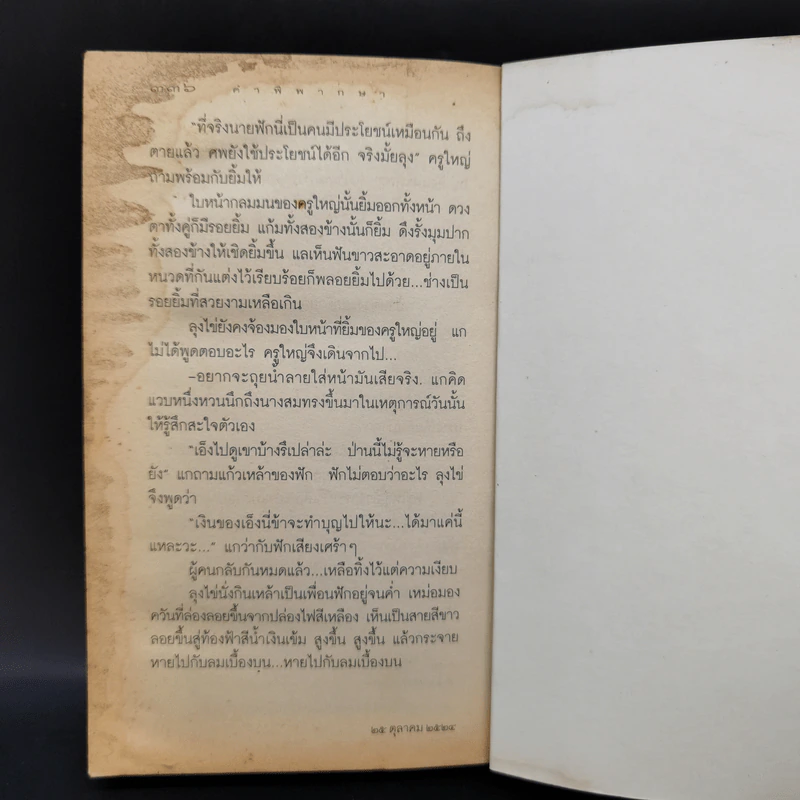 ๓๓๖ คำพิพากษา
"ที่จริงนายฟักนี่เป็นคนมีประโยชน์เหมือนกัน ถึง
ตายแล้ว ศพยังใช้ประโยชน์ได้อีก จริงมั้ยลุง" ครูใหญ่
ถามพร้อมกับยิ้มให้
ใบหน้ากลมมนของครูใหญ่นั้นยิ้มออกทั้งหน้า ดวง
ตาทั้งคู่ก็มีรอยยิ้ม แก้มทั้งสองข้างนั้นก็ยิ้ม ดึงรั้งมุมปาก
ทั้งสองข้างให้เชิดยิ้มขึ้น แลเห็นฟันขาวสะอาดอยู่ภายใน
หนวดที่กันแต่งไว้เรียบร้อยก็พลอยยิ้มไปด้วย...ช่างเป็น
รอยยิ้มที่สวยงามเหลือเกิน
ลุงไข่ยังคงจ้องมองใบหน้าที่ยิ้มของครูใหญ่อยู่ แก
ไม่ได้พูดตอบอะไร ครูใหญ่จึงเดินจากไป...
–อยากจะถุยน้ำลายใส่หน้ามันเสียจริง. แกคิด
แวบหนึ่งหวนนึกถึงนางสมทรงขึ้นมาในเหตุการณ์วันนั้น
ให้รู้สึกสะใจตัวเอง
"เอ็งไปดูเขาบ้างรึเปล่าล่ะ ป่านนี้ไม่รู้จะหายหรือ
ยัง" แกถามแก้วเหล้าของฟัก ฟักไม่ตอบว่าอะไร ลุงไข่
จึงพูดว่า
"เงินของเอ็งนี่ข้าจะทำบุญไปให้นะ...ได้มาแค่นี้
แหละวะ..." แกว่ากับฟักเสียงเศร้าๆ
ผู้คนกลับกันหมดแล้ว...เหลือทิ้งไว้แต่ความเงียบ
ลุงไข่นั่งกินเหล้าเป็นเพื่อนฟักอยู่จนค่ำ เหม่อมอง
ควันที่ล่องลอยขึ้นจากปล่องไฟสีเหลือง เห็นเป็นสายสีขาว
ลอยขึ้นสู่ท้องฟ้าสีน้ำเงินเข้ม สูงขึ้น สูงขึ้น แล้วกระจาย
หายไปกับลมเบื้องบน...หายไปกับลมเบื้องบน
๒๕ ตุลาคม ๒๕๒๔